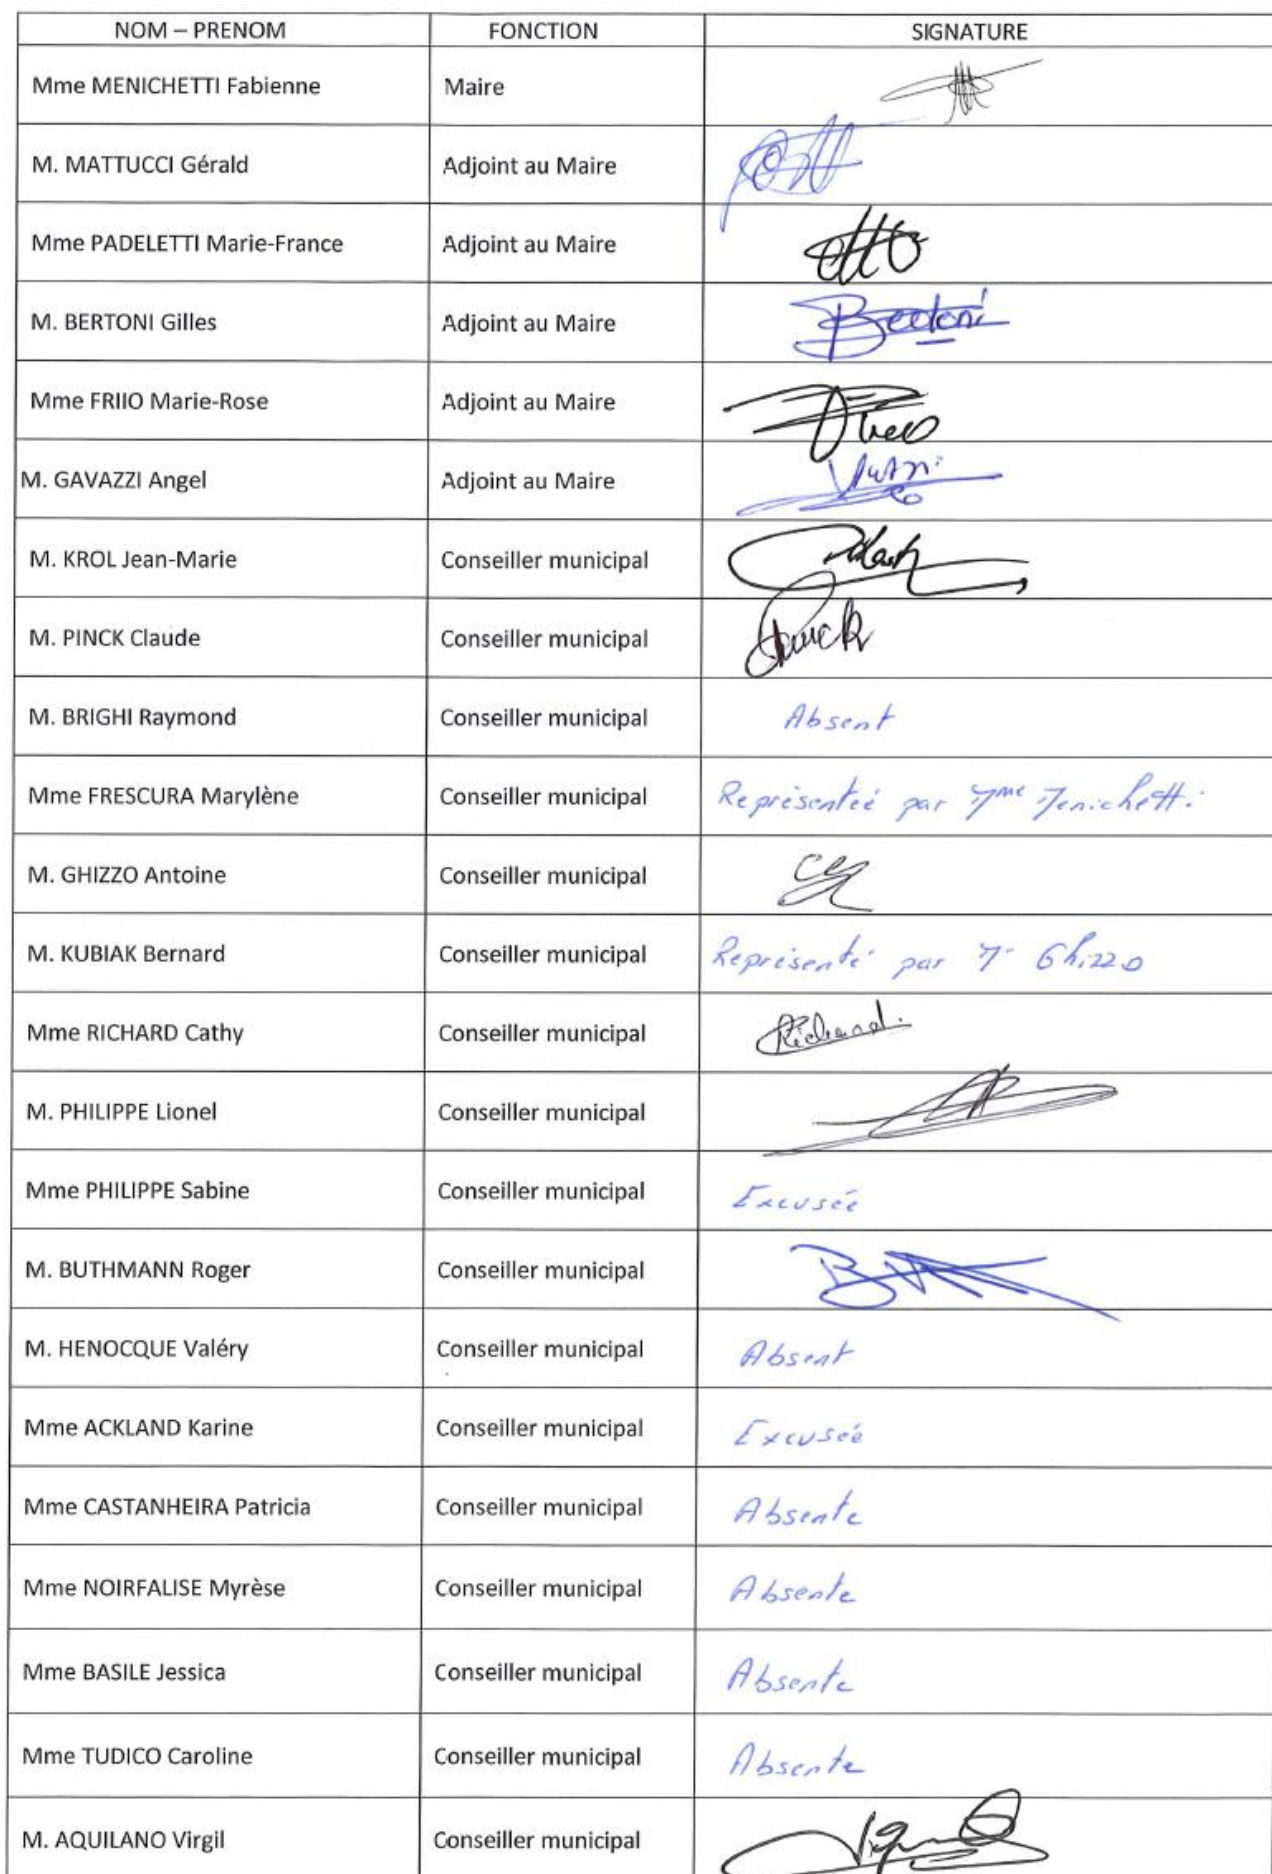 NOM – PRENOM FONCTION SIGNATURE
Mme MENICHETTI Fabienne Maire
M. MATTUCCI Gérald Adjoint au Maire
Mme PADELETTI Marie-France Adjoint au Maire
M. BERTONI Gilles Adjoint au Maire Bertoni
Mme FRIIO Marie-Rose Adjoint au Maire
M. GAVAZZI Angel Adjoint au Maire
M. KROL Jean-Marie Conseiller municipal
M. PINCK Claude Conseiller municipal Pinck
M. BRIGHI Raymond Conseiller municipal Absent
Mme FRESCURA Marylène Conseiller municipal Représentée par Mme Menichetti
M. GHIZZO Antoine Conseiller municipal
M. KUBIAK Bernard Conseiller municipal Représenté par Mr Ghizzo
Mme RICHARD Cathy Conseiller municipal Richard
M. PHILIPPE Lionel Conseiller municipal
Mme PHILIPPE Sabine Conseiller municipal Excusée
M. BUTHMANN Roger Conseiller municipal
M. HENOCQUE Valéry Conseiller municipal Absent
Mme ACKLAND Karine Conseiller municipal Excusée
Mme CASTANHEIRA Patricia Conseiller municipal Absente
Mme NOIRFALISE Myrèse Conseiller municipal Absente
Mme BASILE Jessica Conseiller municipal Absente
Mme TUDICO Caroline Conseiller municipal Absente
M. AQUILANO Virgil Conseiller municipal